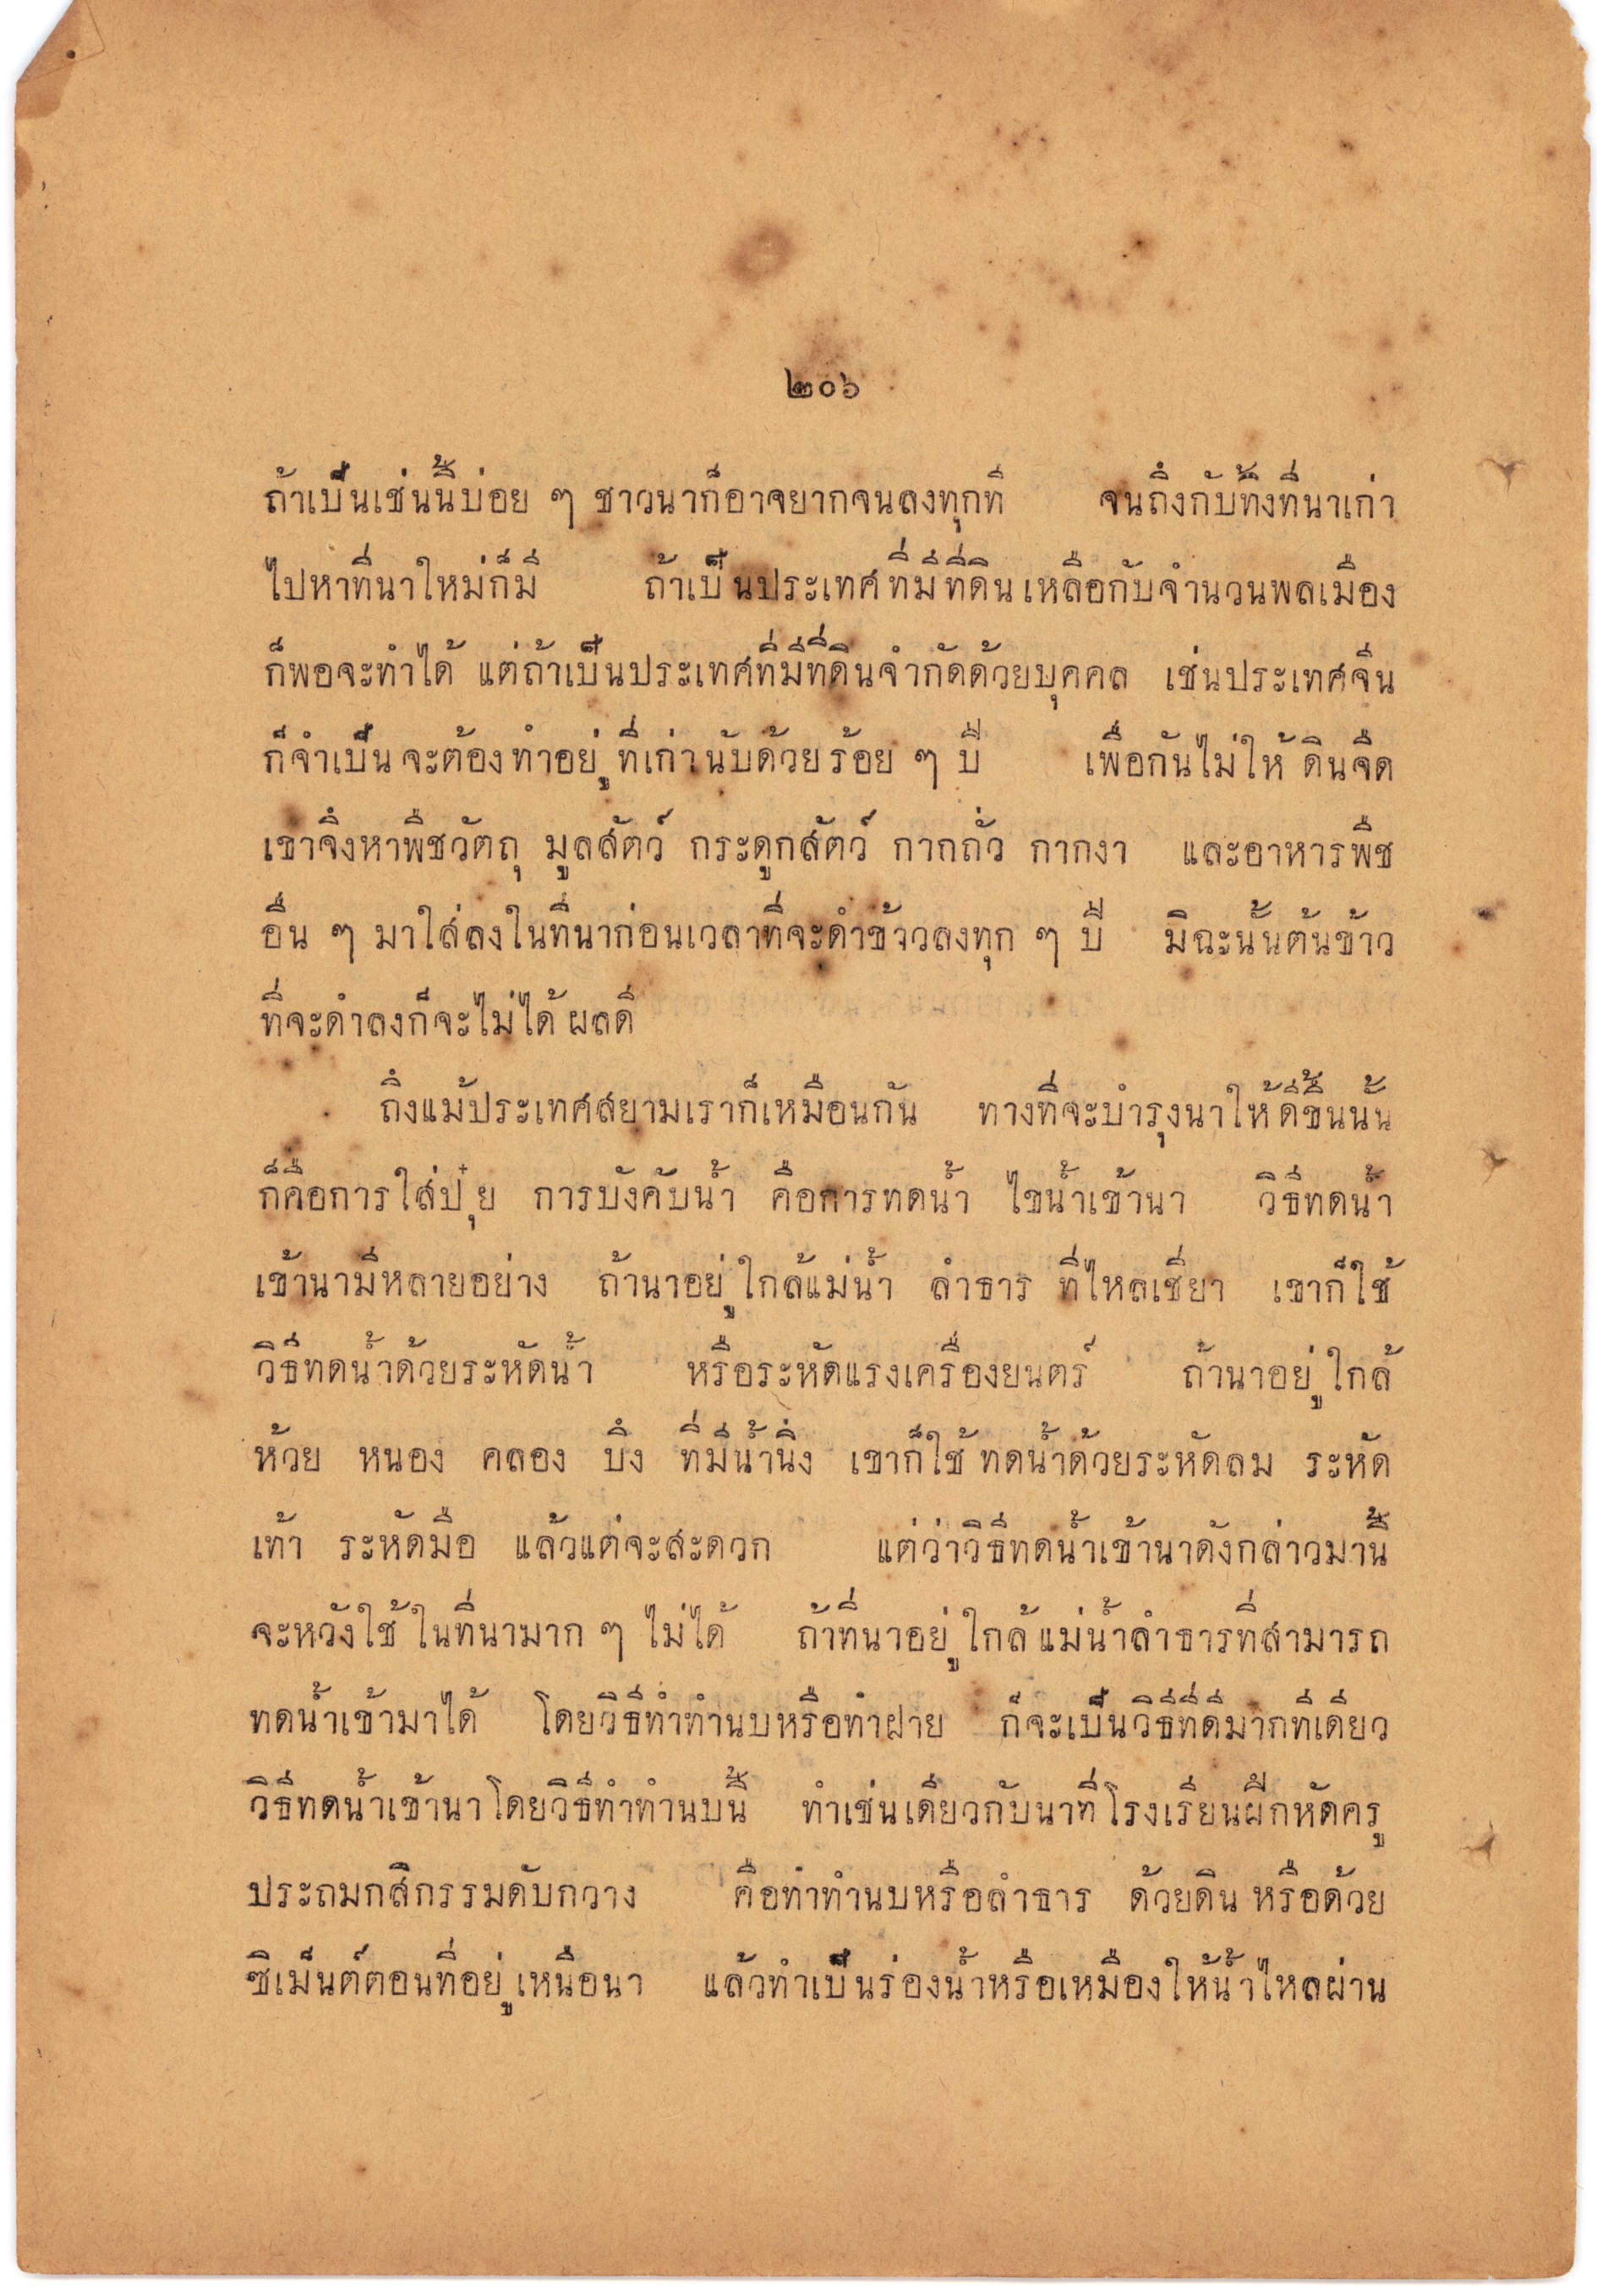 ๒๐๖
ถ้าเป็นเช่นนี้บ่อย ๆ ชาวนาก็อาจยากจนลงทุกที จนถึงกับทิ้งที่นาเก่า
ไปหาที่นาใหม่ก็มี ถ้าเป็นประเทศที่มีที่ดินเหลือกับจำนวนพลเมือง
ก็พอจะทำได้ แต่ถ้าเป็นประเทศที่มีที่ดินจำกัดด้วยบุคคล เช่นประเทศจีน
ก็จำเป็นจะต้องทำอยู่ที่เก่านับด้วยร้อย ๆ ปี เพื่อกันไม่ให้ดินจืด
เขาจึงหาพืชวัตถุ มูลสัตว์ กระดูกสัตว์ กากถั่ว กากงา และอาหารพืช
อื่น ๆ มาใส่ลงในที่นาก่อนเวลาที่จะดำข้าวลงทุก ๆ ปี มิฉะนั้นต้นข้าว
ที่จะดำลงก็จะไม่ได้ผลดี
ถึงแม้ประเทศสยามเราก็เหมือนกัน ทางที่จะบำรุงนาให้ดีขึ้นนั้น
ก็คือการใส่ปุ๋ย การบังคับน้ำ คือการทดน้ำ ไขน้ำเข้านา วิธีทดน้ำ
เข้านามีหลายอย่าง ถ้านาอยู่ใกล้แม่น้ำ ลำธาร ที่ไหลเชี่ยว เขาก็ใช้
วิธีทดน้ำด้วยระหัดน้ำ หรือระหัดแรงเครื่องยนตร์ ถ้านาอยู่ใกล้
ห้วย หนอง คลอง บึง ที่มีน้ำนิ่ง เขาก็ใช้ทดน้ำด้วยระหัดลม ระหัด
เท้า ระหัดมือ แล้วแต่จะสะดวก แต่ว่าวิธีทดน้ำเข้านาดังกล่าวมานี้
จะหวังใช้ในที่นามาก ๆ ไม่ได้ ถ้าที่นาอยู่ใกล้แม่น้ำลำธารที่สามารถ
ทดน้ำเข้ามาได้ โดยวิธีทำทำนบหรือทำฝาย ก็จะเป็นวิธีที่ดีมากทีเดียว
วิธีทดน้ำเข้านาโดยวิธีทำทำนบนี้ ทำเช่นเดียวกับนาที่โรงเรียนฝึกหัดครู
ประถมกสิกรรมดับกวาง คือทำทำนบหรือลำธาร ด้วยดิน หรือด้วย
ซิเม็นต์ตอนที่อยู่เหนือนา แล้วทำเป็นร่องน้ำหรือเหมืองให้น้ำไหลผ่าน